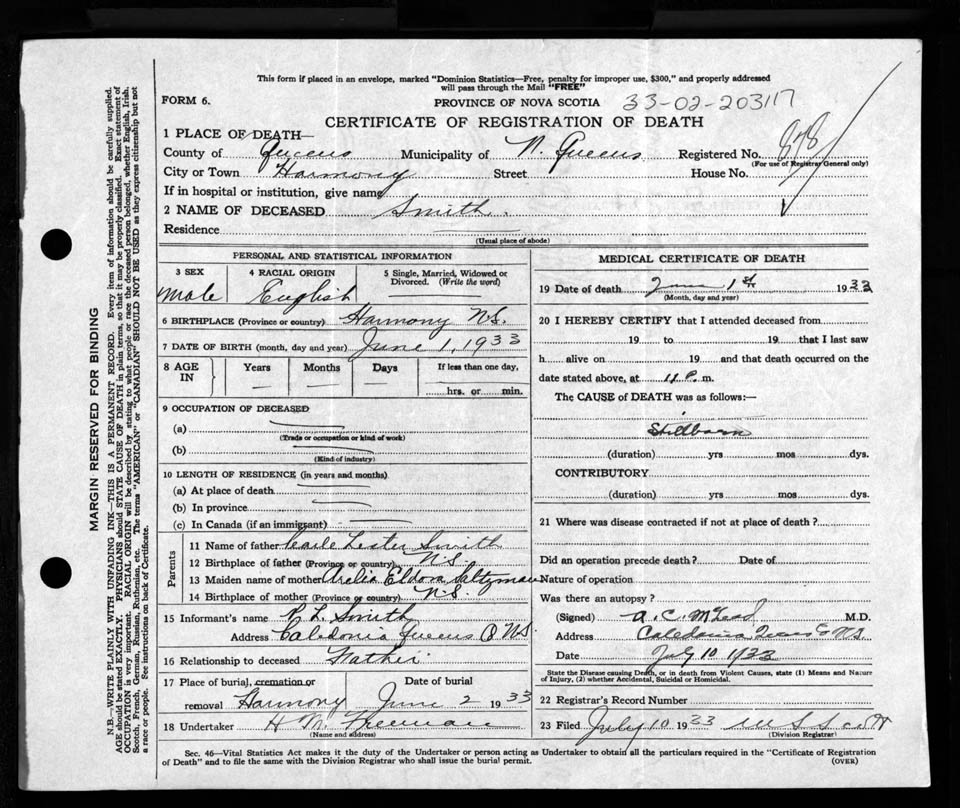 This form if placed in an envelope, marked "Dominion Statistics—Free, penalty for improper use, $300," and properly addressed
will pass through the Mail "FREE"
FORM 6.
PROVINCE OF NOVA SCOTIA 33-02-203117
CERTIFICATE OF REGISTRATION OF DEATH
1 PLACE OF DEATH—
County of Queens Municipality of N. Queens Registered No. 878
(For use of Registrar General only)
City or Town Harmony Street House No.
If in hospital or institution, give name
2 NAME OF DECEASED Smith.
Residence
(Usual place of abode)
PERSONAL AND STATISTICAL INFORMATION
3 SEX 4 RACIAL ORIGIN 5 Single, Married, Widowed or Divorced. (Write the word)
male English
6 BIRTHPLACE (Province or country) Harmony N.S.
7 DATE OF BIRTH (month, day and year) June 1, 1933
8 AGE IN Years Months Days If less than one day,
— — — hrs. or min.
9 OCCUPATION OF DECEASED
(a)
(Trade or occupation or kind of work)
(b)
(Kind of industry)
10 LENGTH OF RESIDENCE (in years and months)
(a) At place of death
(b) In province
(c) In Canada (if an immigrant)
Parents
11 Name of father Lester Smith
12 Birthplace of father (Province or country) N.S.
13 Maiden name of mother Eldora Saltzman
14 Birthplace of mother (Province or country) N.S.
15 Informant's name L. Smith
Address Caledonia Queens Co N.S.
16 Relationship to deceased Father
17 Place of burial, cremation or removal Date of burial
Harmony June 2 1933
18 Undertaker H M Freeman
(Name and address)
MEDICAL CERTIFICATE OF DEATH
19 Date of death June 1st 1933
(Month, day and year)
20 I HEREBY CERTIFY that I attended deceased from
19 to 19 that I last saw
h alive on 19 and that death occurred on
date stated above, at P. m.
The CAUSE of DEATH was as follows:—
Stillborn
(duration) yrs mos dys.
CONTRIBUTORY
(duration) yrs mos dys.
21 Where was disease contracted if not at place of death?
Did an operation precede death? Date of
Nature of operation
Was there an autopsy?
(Signed) A. C. McLeod M.D.
Address Caledonia Queens Co N.S.
Date July 10 1933
State the Disease causing Death, or in death from Violent Causes, state (1) Means and Nature
of Injury, (2) whether Accidental, Suicidal or Homicidal.
22 Registrar's Record Number
23 Filed July 10 1933 W S Scott
(Division Registrar)
Sec. 46—Vital Statistics Act makes it the duty of the Undertaker or person acting as Undertaker to obtain all the particulars required in the "Certificate of Registration
of Death" and to file the same with the Division Registrar who shall issue the burial permit. (OVER)
MARGIN RESERVED FOR BINDING
N.B.—WRITE PLAINLY WITH UNFADING INK—THIS IS A PERMANENT RECORD. Every item of information should be carefully supplied.
AGE should be stated EXACTLY. PHYSICIANS should STATE CAUSE OF DEATH in plain terms, so that it may be properly classified. Exact statement of
OCCUPATION is very important. RACIAL ORIGIN will be described by stating to what people or race the deceased person belonged, whether English, Irish,
Scotch, French, German, Russian, Ruthenian, etc. The terms "AMERICAN" or "CANADIAN" SHOULD NOT BE USED as they express citizenship but not
a race or people. See instructions on back of Certificate.